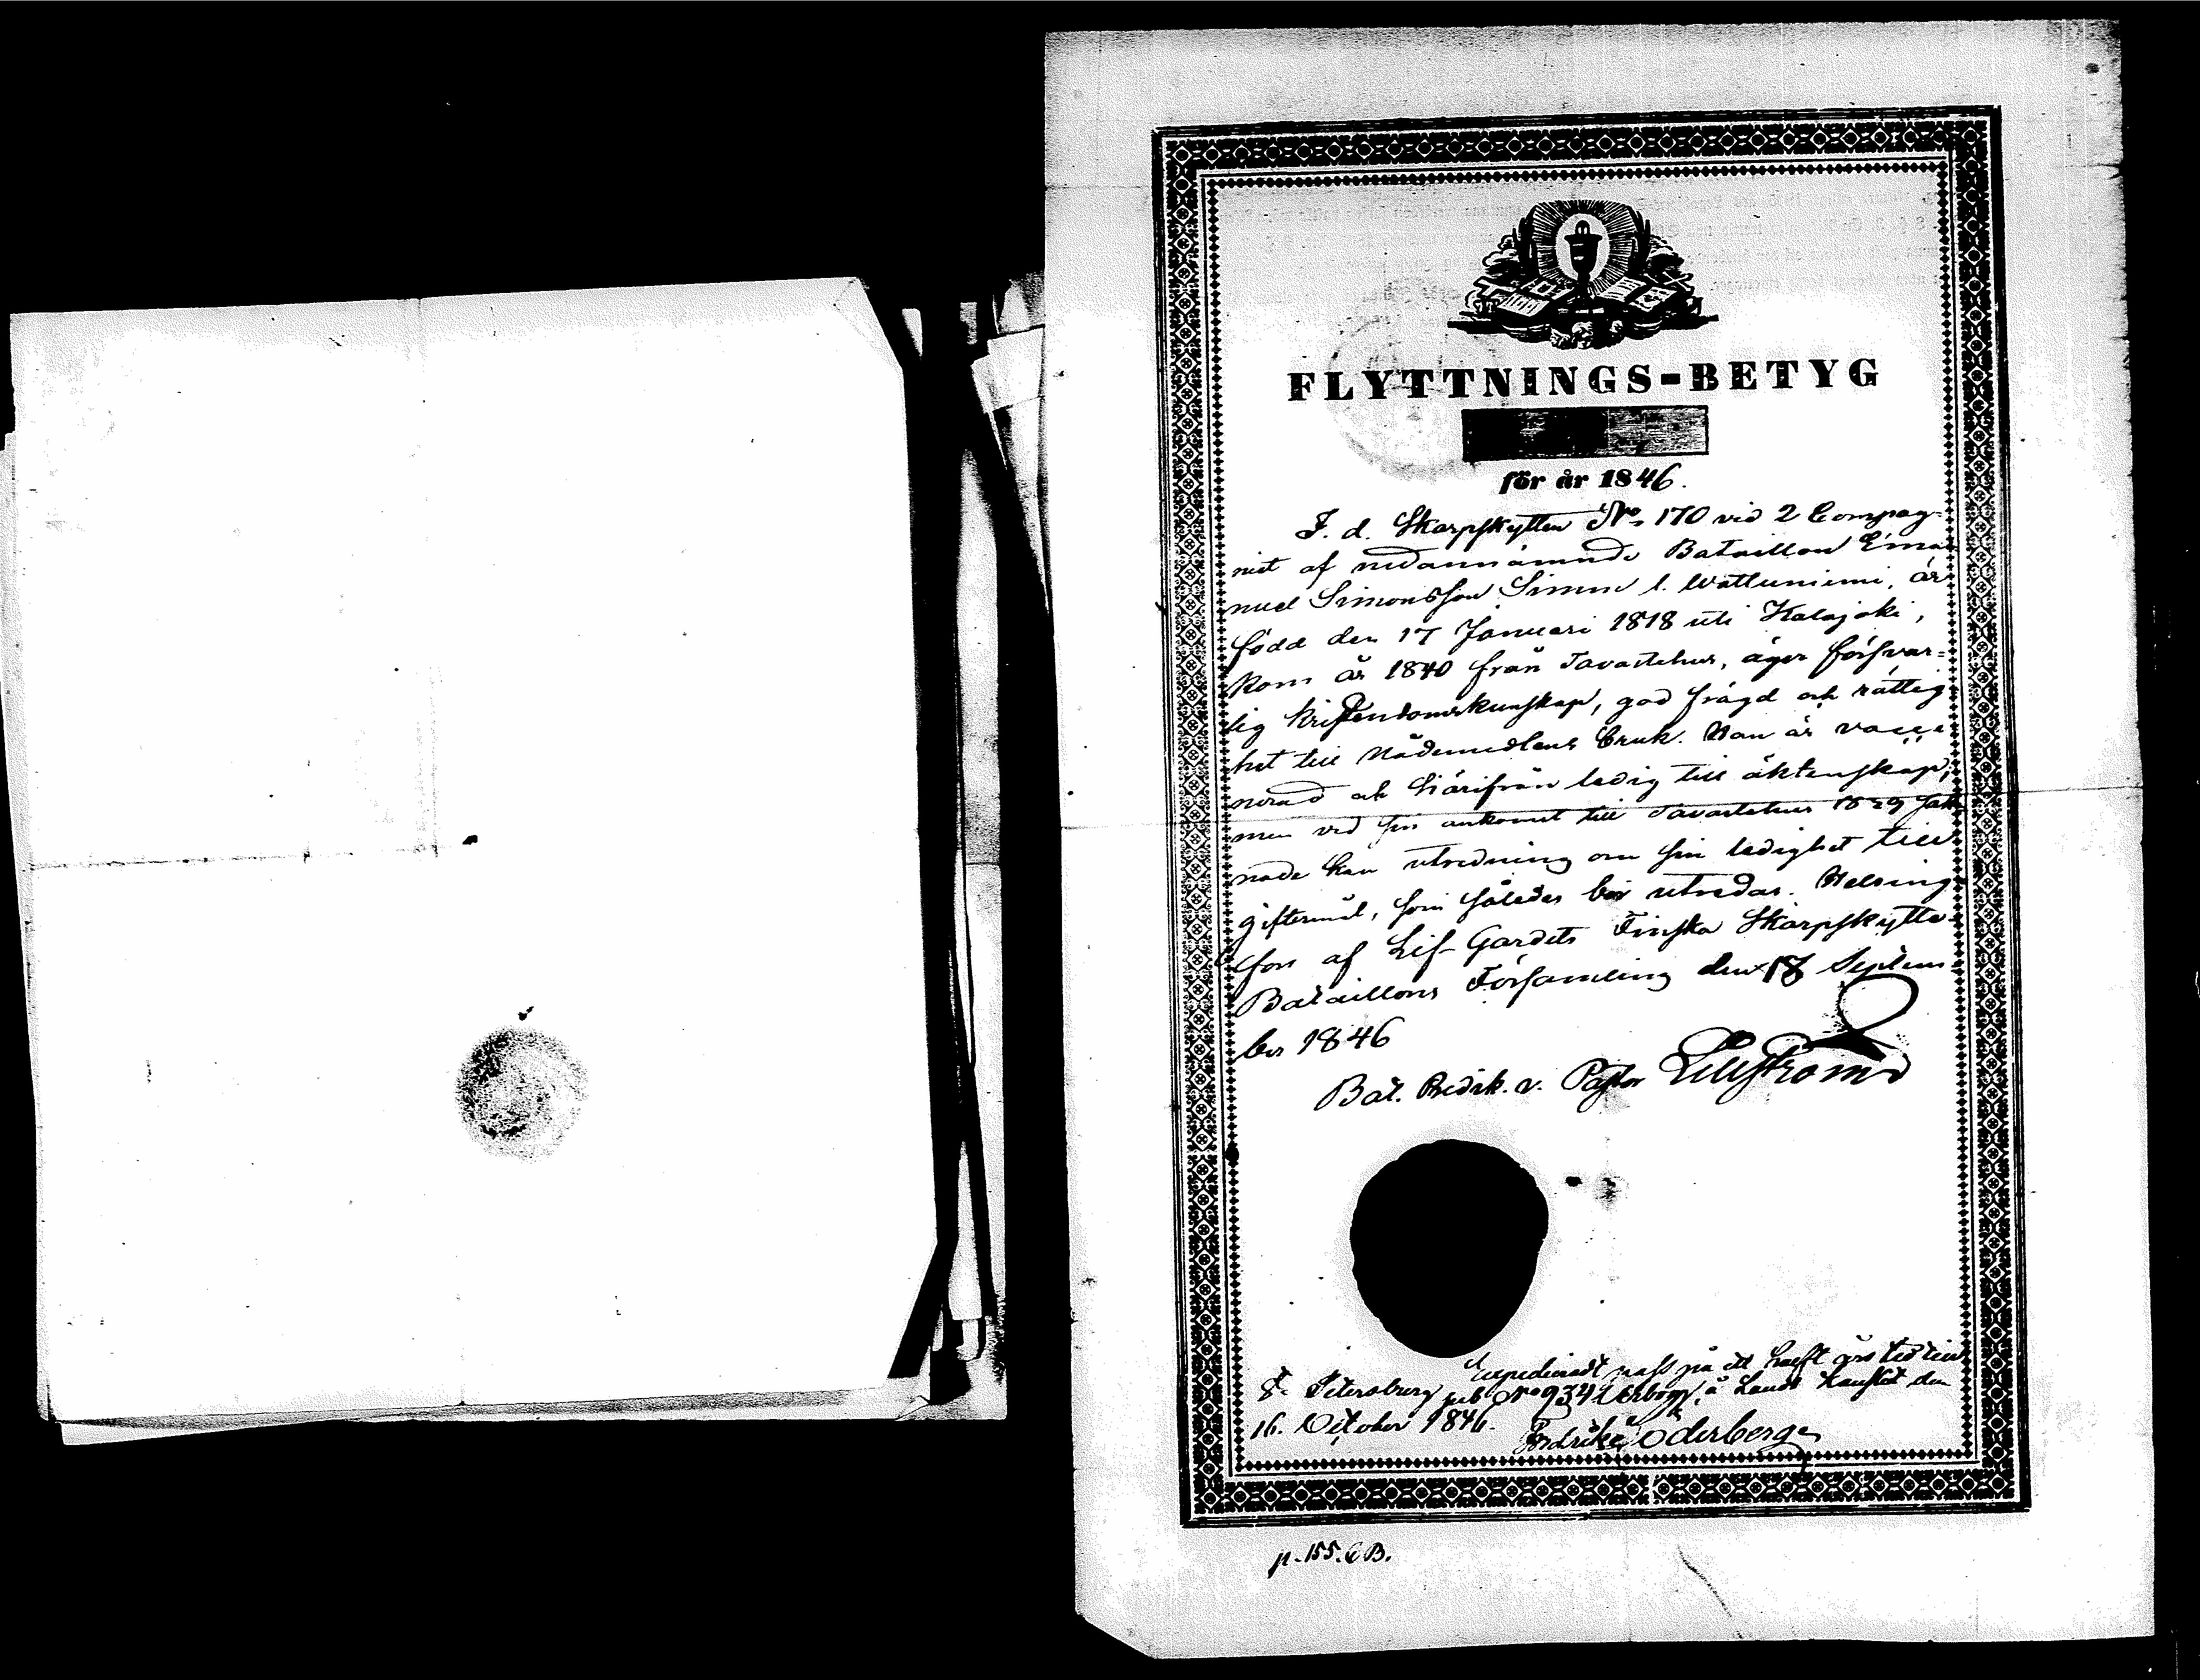 FLYTTNINGS-BETYG
för år 1846.
F. d. Skarpskytten No 170 vid 2 Compag-
niet af nedannämnde Bataillon Ema-
nuel Simonsson Simm l. Wättuniemi, är
född den 17 Januari 1818 uti Kalajoki,
kom år 1840 från Tavastehus, äger försvar=
lig kristendomskunskap, god frägd och rättig
het till Nådemedlens bruk. Han är vacci
nerad och härifrån ledig till äktenskap,
men vid sin ankomst till Tavastehus 1839 sak
nade han utredning om sin ledighet till
giftermål, som således bör utredas. Helsing
fors af Lif-Gardets Finska Skarpskytte-
Bataillons Församling den 17 Septem-
ber 1846
Bat. Predik. v. Pastor Lilljström
Expedieradt pass på ett halft års tid till
S:t Petersburg sub No 934 Uleåborg, å Lands Kansliet den
16. October 1846. Fredrik Söderberg
p. 155. C.B.